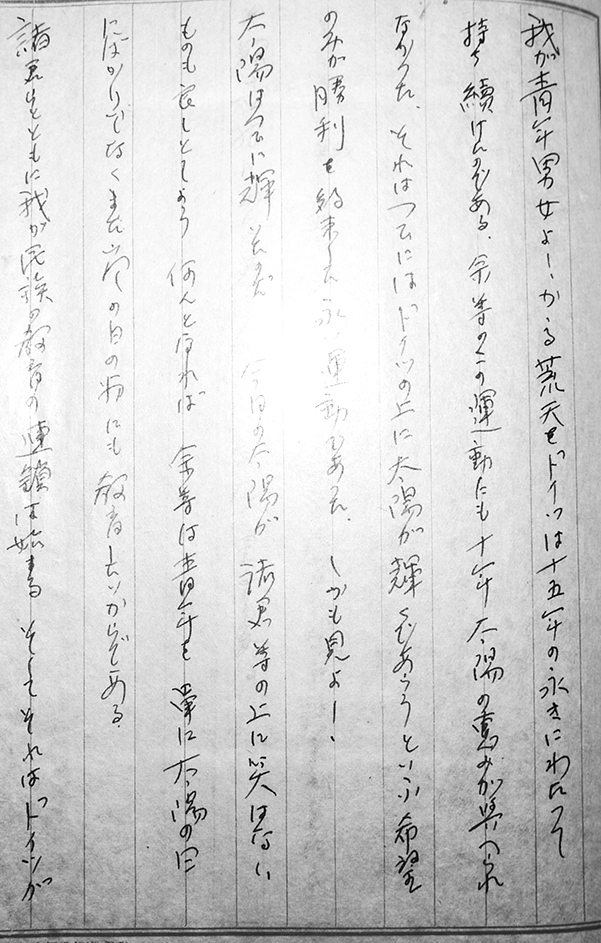 我が青年男女よ！かゝる荒天をドイツは十五年の永きにわたって
持ち續けたのである、余等のこの運動にも十年 太陽の恵みが與へられ
なかった、それはつひにはドイツの上に太陽が輝くであらうといふ希望
のみが勝利を約束した永い運動であった、しかも見よ！、
太陽はつひに輝いたのだ 今日の太陽が 諸君等の上に笑はない
ものも良しとしよう 何んとなれば 余等は青年を 常に太陽の日
にばかりでなくまた嵐の日の為にも 教育したいからである
諸君とともに我が民族の教育の連鎖は始まる そしてそれはドイツが